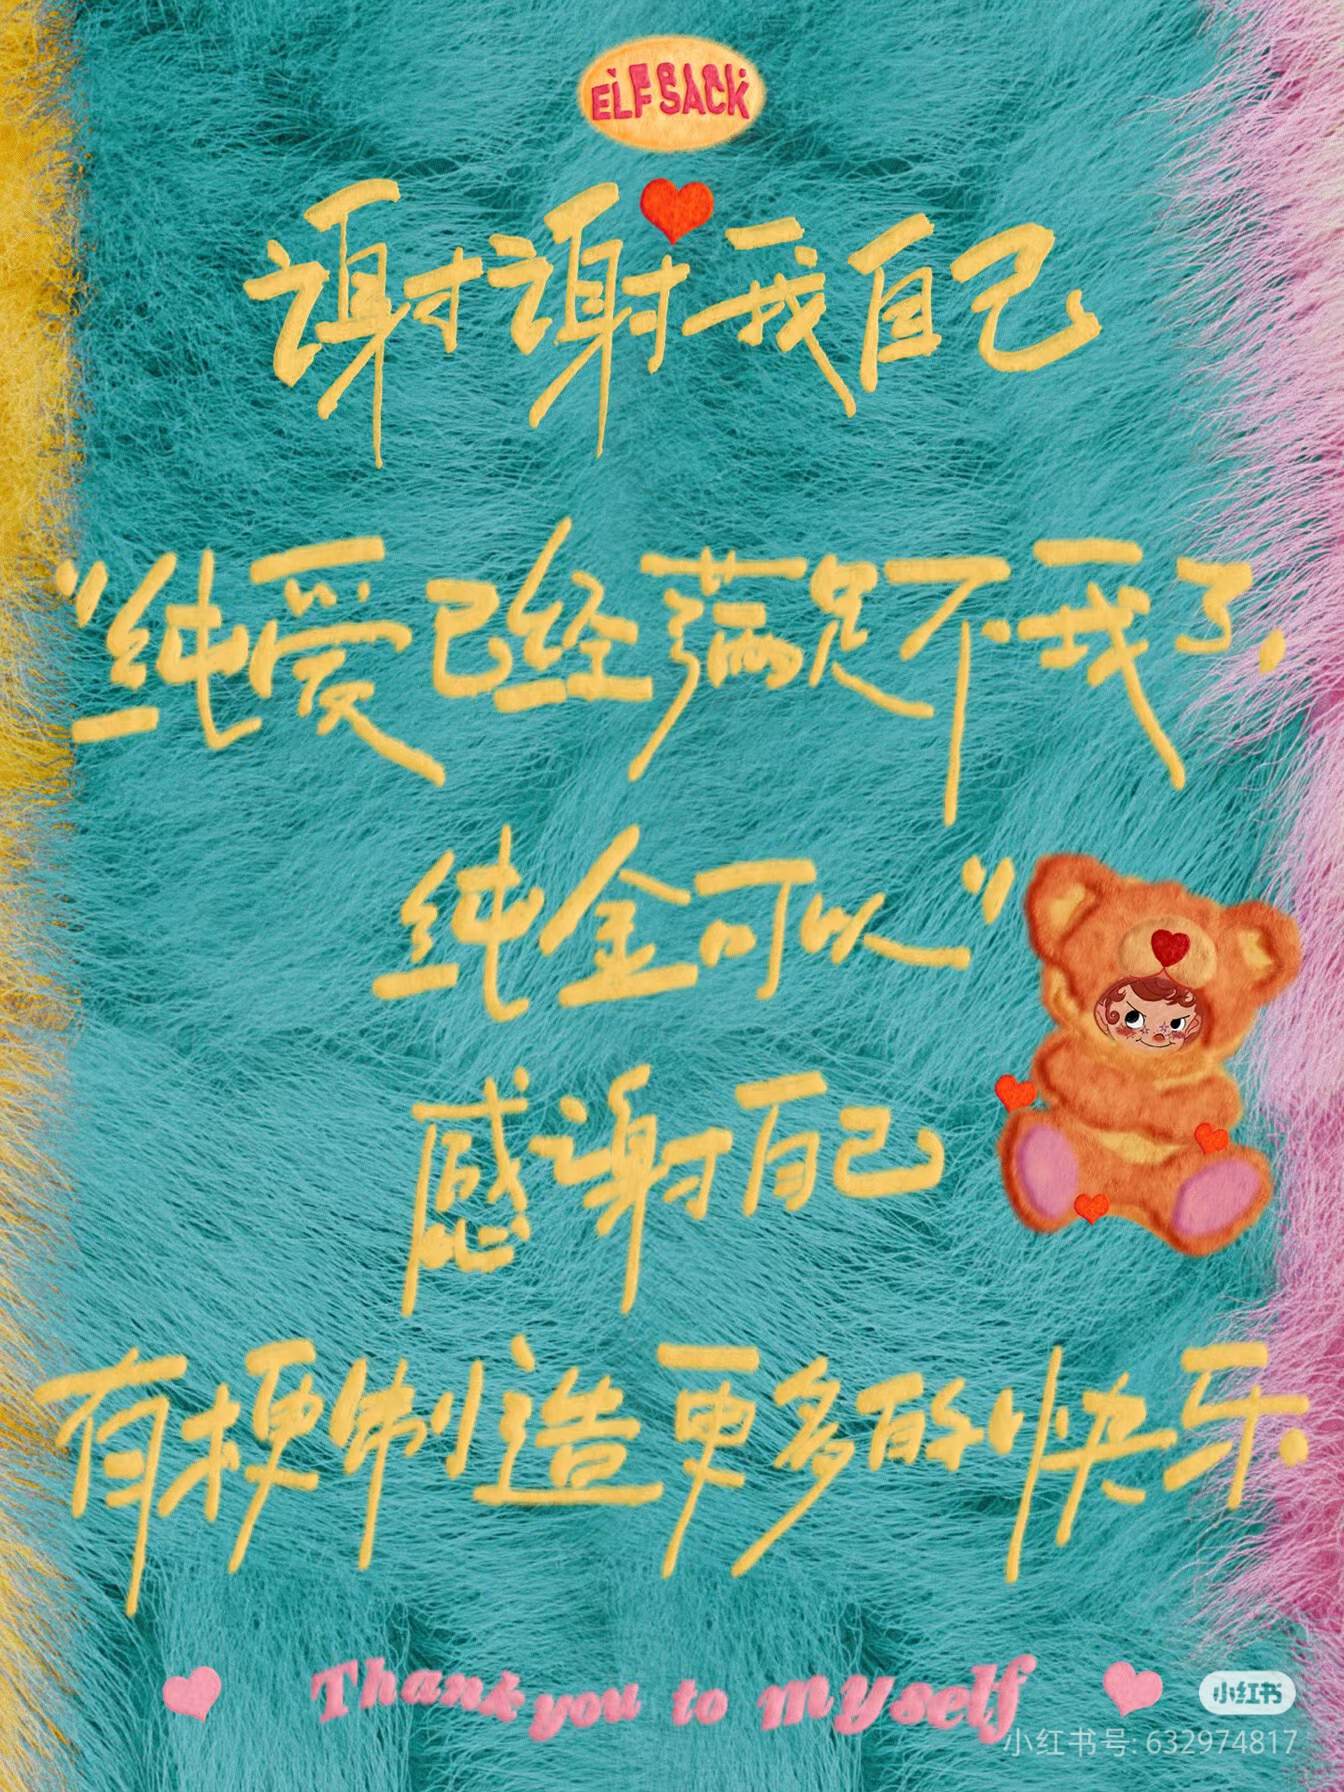 ELF SACK
谢谢我自己
“纯爱已经满足不我了，
纯金可以”
感谢自己
有梗制造更多的快乐
Thank you to myself
小红书
小红书号: 632974817